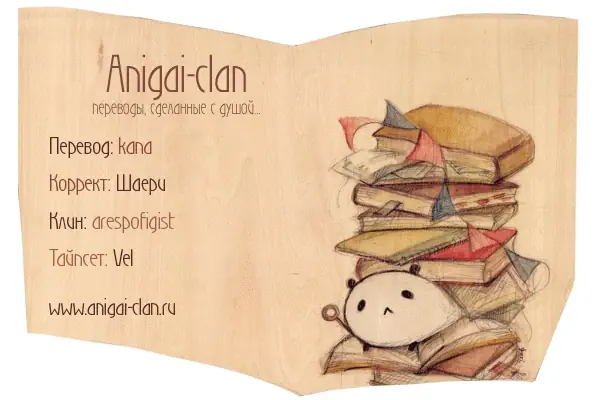 Anigai-clan
переводы, сделанные с душой...
Перевод: kana
Коррект: Шаери
Клин: arespofigist
Тайпсет: Vel
www.anigai-clan.ru